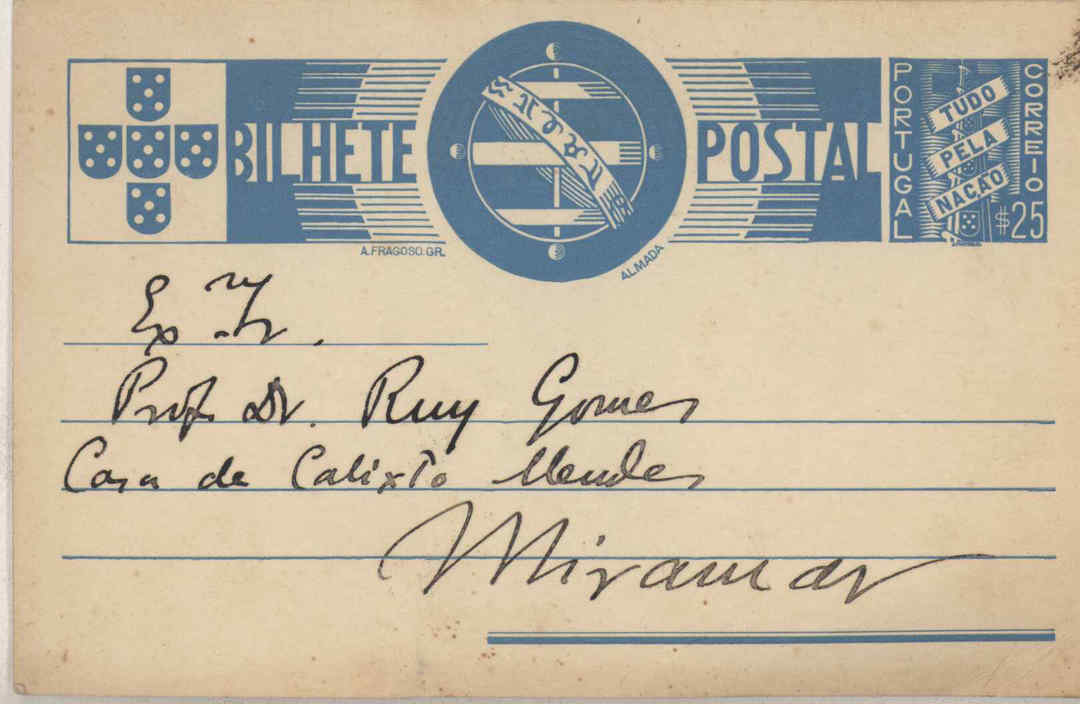 BILHETE POSTAL
PORTUGAL
CORREIO
TUDO
PELA
NAÇÃO
$25
A. FRAGOSO. GR.
ALMADA
Ex.mo Sr.
Prof. Dr. Ruy Gomes
Casa de Calixto Mendes
Miramar